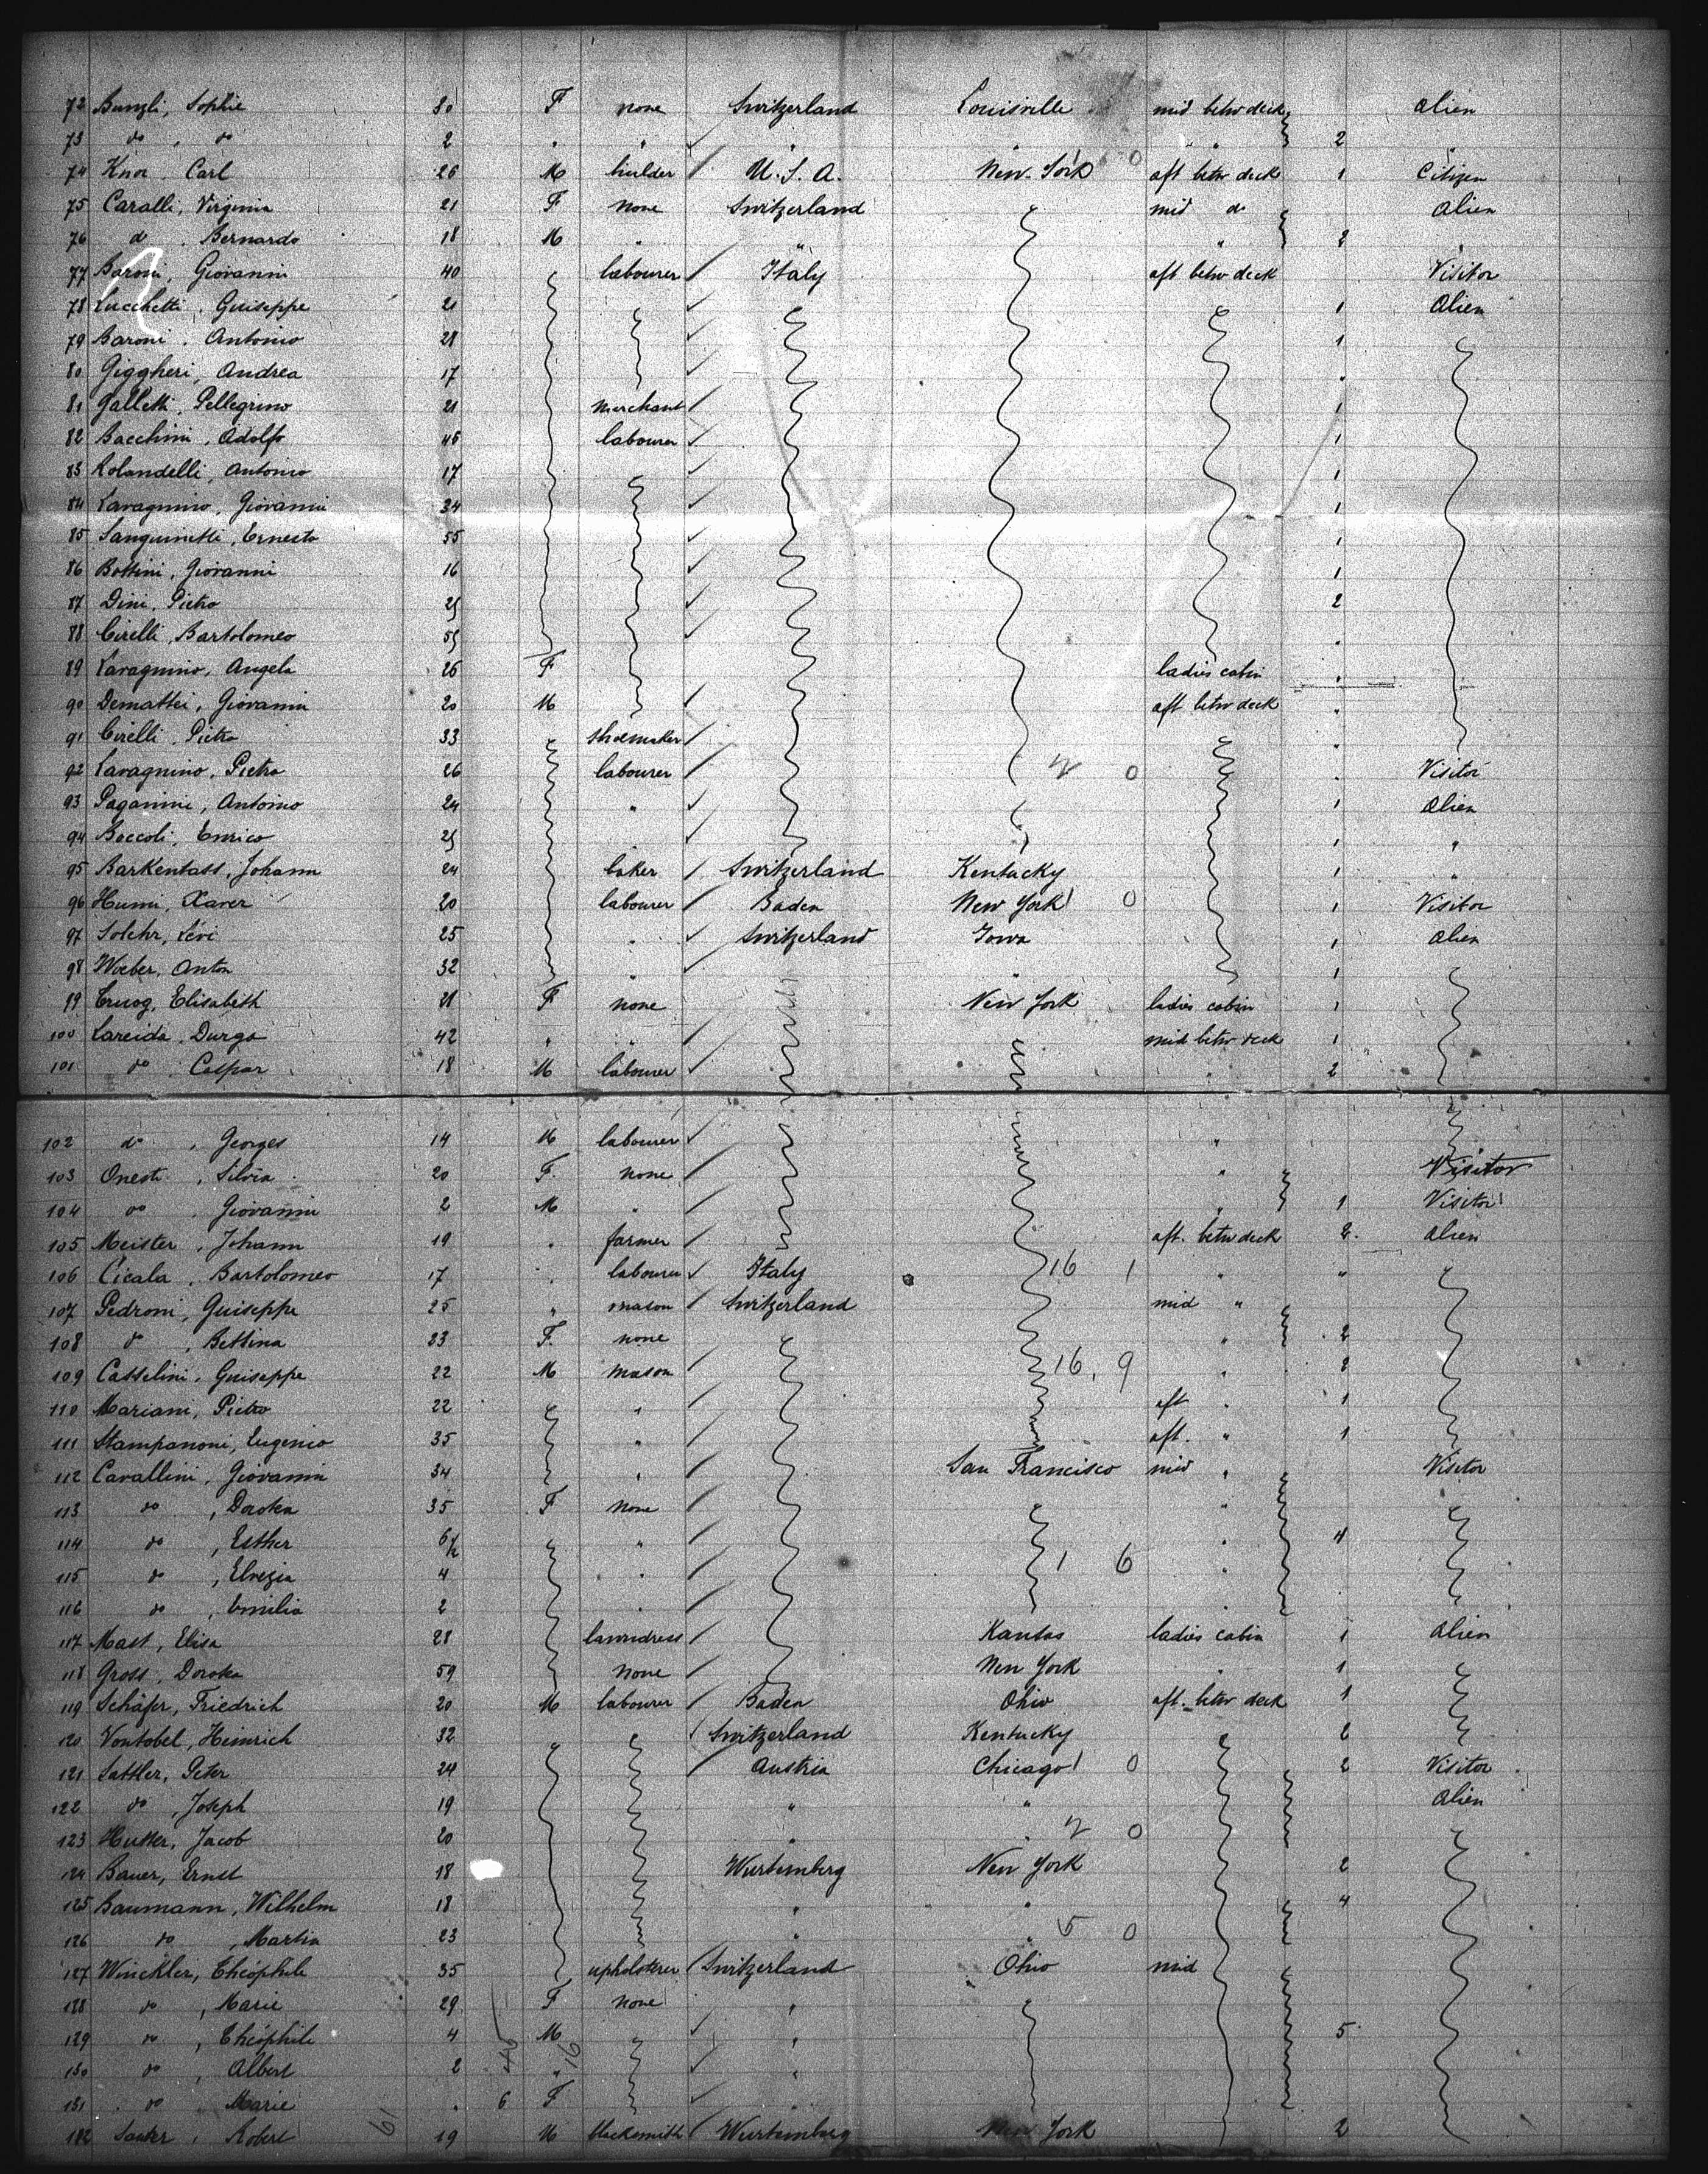 72 Bunzli, Sophie 30 F none Switzerland Louisville mid betw deck Alien
73 do , do 2 " " " " " " 2 "
74 Knor. Carl 26 M builder U.S.A. New-York 0 aft betw deck 1 Citizen
75 Caralli, Virginia 21 F none Switzerland mid do Alien
76 do . Bernardo 18 M " " " 2 "
77 Baroni, Giovanni 40 labourer Italy aft betw deck Visitor
78 Lucchetti, Guiseppe 21 1 Alien
79 Baroni. Antonio 28 1
80 Giggheri, Andrea 17 "
81 Galletti, Pellegrino 21 merchant 1
82 Bacchini, Adolfo 45 labourer 1
83 Rolandelli, Antonio 17 1
84 Lavagnino, Giovanni 34 1
85 Sanguinetti, Ernesto 55 1
86 Bottini, Giovanni 16 1
87 Dini, Pietro 25 2
88 Cirelli, Bartolomeo 55 "
89 Lavagnino, Angela 26 F ladies cabin "
90 Demattei, Giovanni 20 M aft betw deck "
91 Cirelli, Pietro 33 shoemaker "
92 Lavagnino, Pietro 26 labourer 0 " Visitor
93 Paganini, Antonio 24 " 1 Alien
94 Boccoli, Enrico 25 1 "
95 Barkentass, Johann 24 baker Switzerland Kentucky 1 "
96 Humm, Xaver 20 labourer Baden New York 0 1 Visitor
97 Solchr, Levi 25 " Switzerland Iowa 1 Alien
98 Weber, Anton 32 " " 1
99 Truog, Elisabeth 21 F none New York ladies cabin 1
100 Lareida, Durga 42 " " mid betw deck 1
101 do . Caspar 18 M labourer " 2
102 do , Georges 14 M labourer "
103 Onesti, Silvia 20 F. none " Visitor
104 do . Giovanni 2 M " " 1 Visitor
105 Meister, Johann 19 " farmer aft. betw deck 2. Alien
106 Cicala, Bartolomeo 17 " labourer Italy 16 1 " "
107 Pedroni, Guiseppe 25 " mason Switzerland mid "
108 do , Bettina 23 F. none " 2
109 Casselini, Guiseppe 22 M mason 16, 9 " 2
110 Mariani, Pietro 22 " aft " 1
111 Stampanoni, Eugenio 35 " aft. " 1
112 Cavallini, Giovanni 34 " San Francisco mid " Visitor
113 do , Dorotea 35 F none "
114 do , Esther 6/12 " " 4
115 do , Elvezia 4 " 1 6 "
116 do , Emilia 2 " "
117 Mast, Elisa 28 laundress Kansas ladies cabin 1 Alien
118 Gross, Dorotea 59 none New York " 1
119 Schäfer, Friedrich 20 M labourer Baden Ohio aft. betw deck 1
120 Vontobel, Heinrich 32 Switzerland Kentucky 2
121 Sattler, Peter 24 Austria Chicago 0 2 Visitor
122 do , Joseph 19 " " Alien
123 Hutter, Jacob 20 " " 0
124 Bauer, Ernst 18 Wurtemberg New York 2
125 Baumann, Wilhelm 18 " " 4
126 do , Martin 23 " " 5 0
127 Winckler, Théophile 35 upholsterer Switzerland Ohio mid
128 do , Marie 29 F none "
129 do , Théophile 4 M " 5
130 do , Albert 2 " "
131 do . Marie . 6 F "
132 Sauter, Robert 19 M blacksmith Wurtemberg New York 2